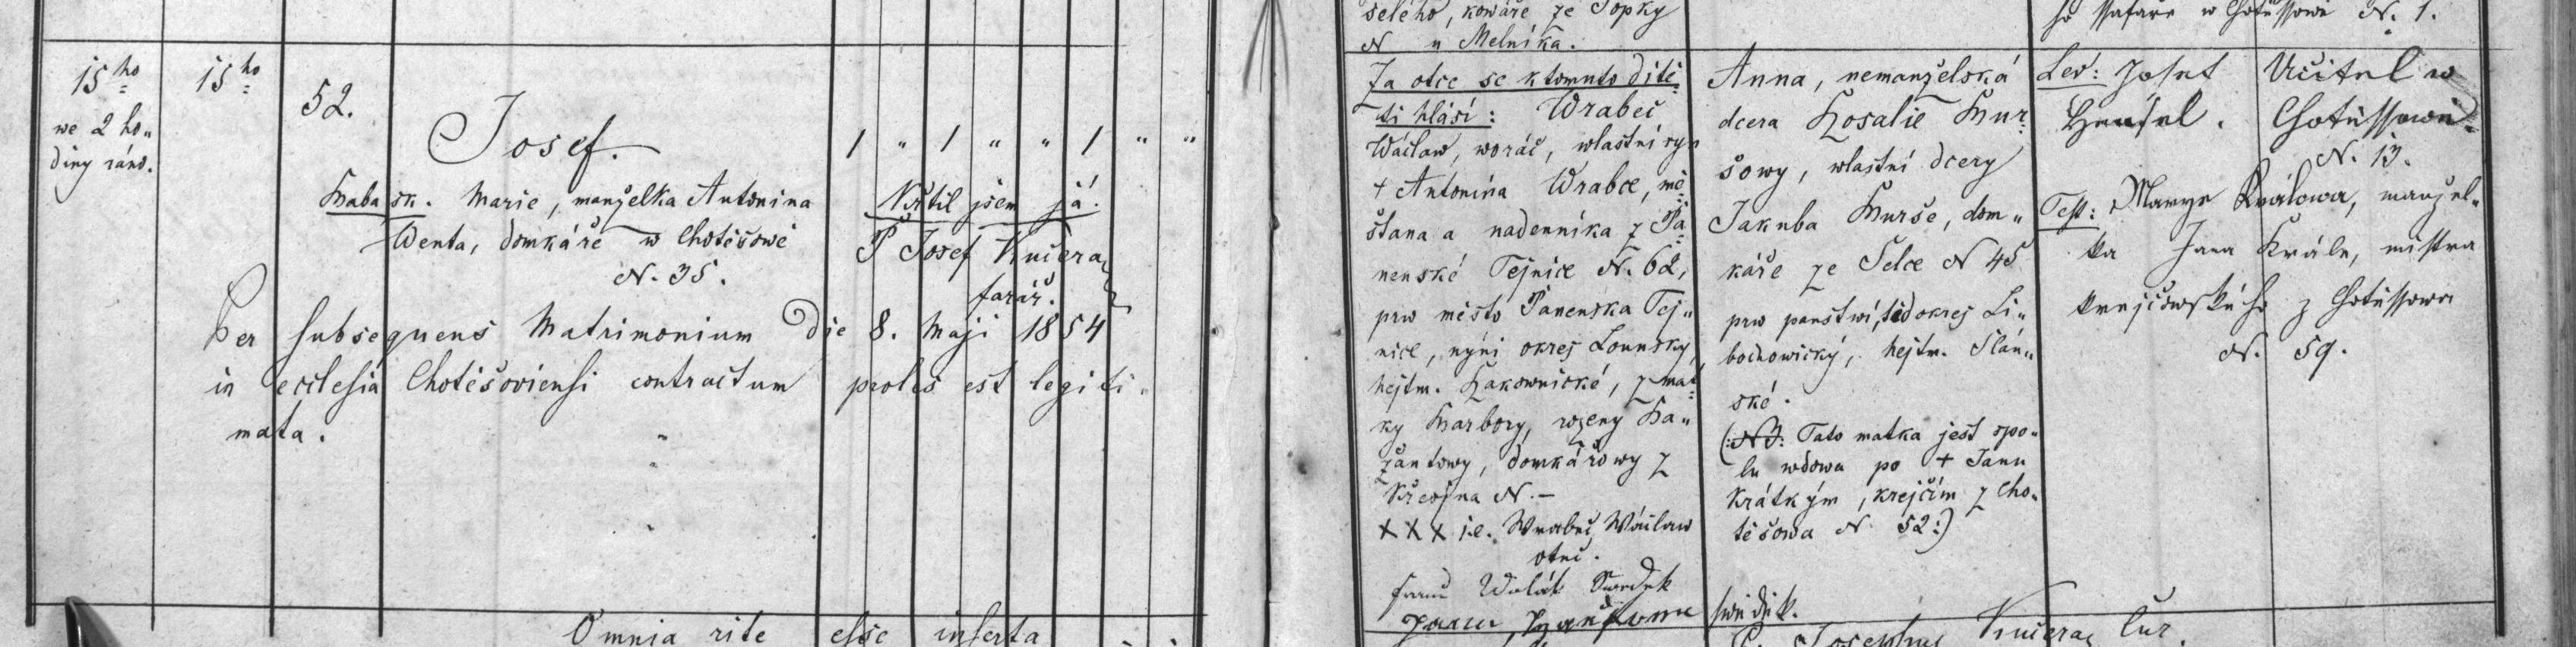 selého, kowáře ze Sopky
N u Melníka.
ho ssafáre w Chotěssowě N. 1.
15ho
we 2 ho„
diny ráno.
15ho
52.
Josef.
1 „ 1 „ „ 1 „ „
Baba sk. Marie, manželka Antonina
Wenta, domkáře w Chotěšowě
N. 35.
Křtil jsem já:
P Josef Kučera
farář.
Per subsequens Matrimonium Die 8. Maji 1854
in ecclesia Chotěšoviensi contractum proles est legiti„
mata.
Omnia rite esse inserta
Za otce se k tomuto dítě„
ti hlásí: Wrabec
Wáclaw, woráč, wlastní syn
+ Antonína Wrabce, mě„
štana a nadenníka z Pa„
nenské Tejnice N. 62,
prw město Panenska Tej„
nice, nyní okres Lounsky,
hejtm. Rakownické, z mat„
ky Barbory, rozeny Ba„
žantowy, domkářowy z
N. –
X X X i.e. Wrabec Wáclaw
otec.
Anna, nemanželská
dcera Rosalie Bur„
šowy, wlastní dcery
Jakuba Burše, dom„
káře ze Selce N 45
prw panstwí, teď okres Li„
bochowický, hejtm. Slán„
ské.
(:NB: Tato matka jest spo„
lu wdowa po + Janu
Krátkým, krejčím z Cho„
těšowa N 52:)
swědek.
P. Josephus Kučera Cur.
Lev: Josef
Učitel w
Chotěssowě
N. 13.
Test: Marye Králowa, manžel„
ka Jana Krále, mistra
krejčowského z Chotěssowa
N. 59.